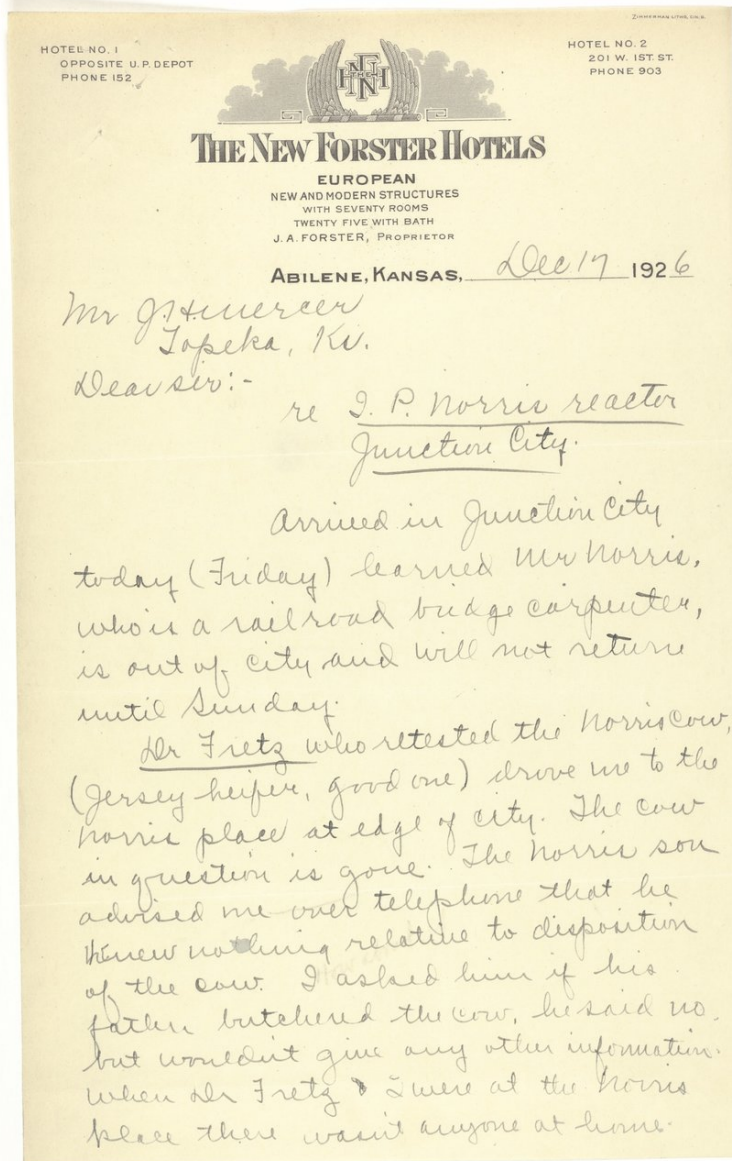 ZIMMERMAN LITHO. CIN. O.
HOTEL NO. 1
OPPOSITE U. P. DEPOT
PHONE 152
HOTEL NO. 2
201 W. 1ST. ST.
PHONE 903
THE NEW FORSTER HOTELS
EUROPEAN
NEW AND MODERN STRUCTURES
WITH SEVENTY ROOMS
TWENTY FIVE WITH BATH
J. A. FORSTER, PROPRIETOR
ABILENE, KANSAS, Dec 17 1926
Mr J. H. Mercer
Topeka, Ks.
Dear sir:-
re I. P. Norris reactor
Junction City.
Arrived in Junction City
today (Friday) learned Mr Norris,
who is a railroad bridge carpenter,
is out of city and will not return
until Sunday.
Dr Fretz who retested the Norris cow,
(Jersey heifer, good one) drove me to the
Norris place at edge of city. The cow
in question is gone. The Norris son
advised me over telephone that he
knew nothing relative to disposition
of the cow. I asked him if his
father butchered the cow, he said no,
but wouldn't give any other information.
When Dr Fretz & I were at the Norris
place there wasn't anyone at home.